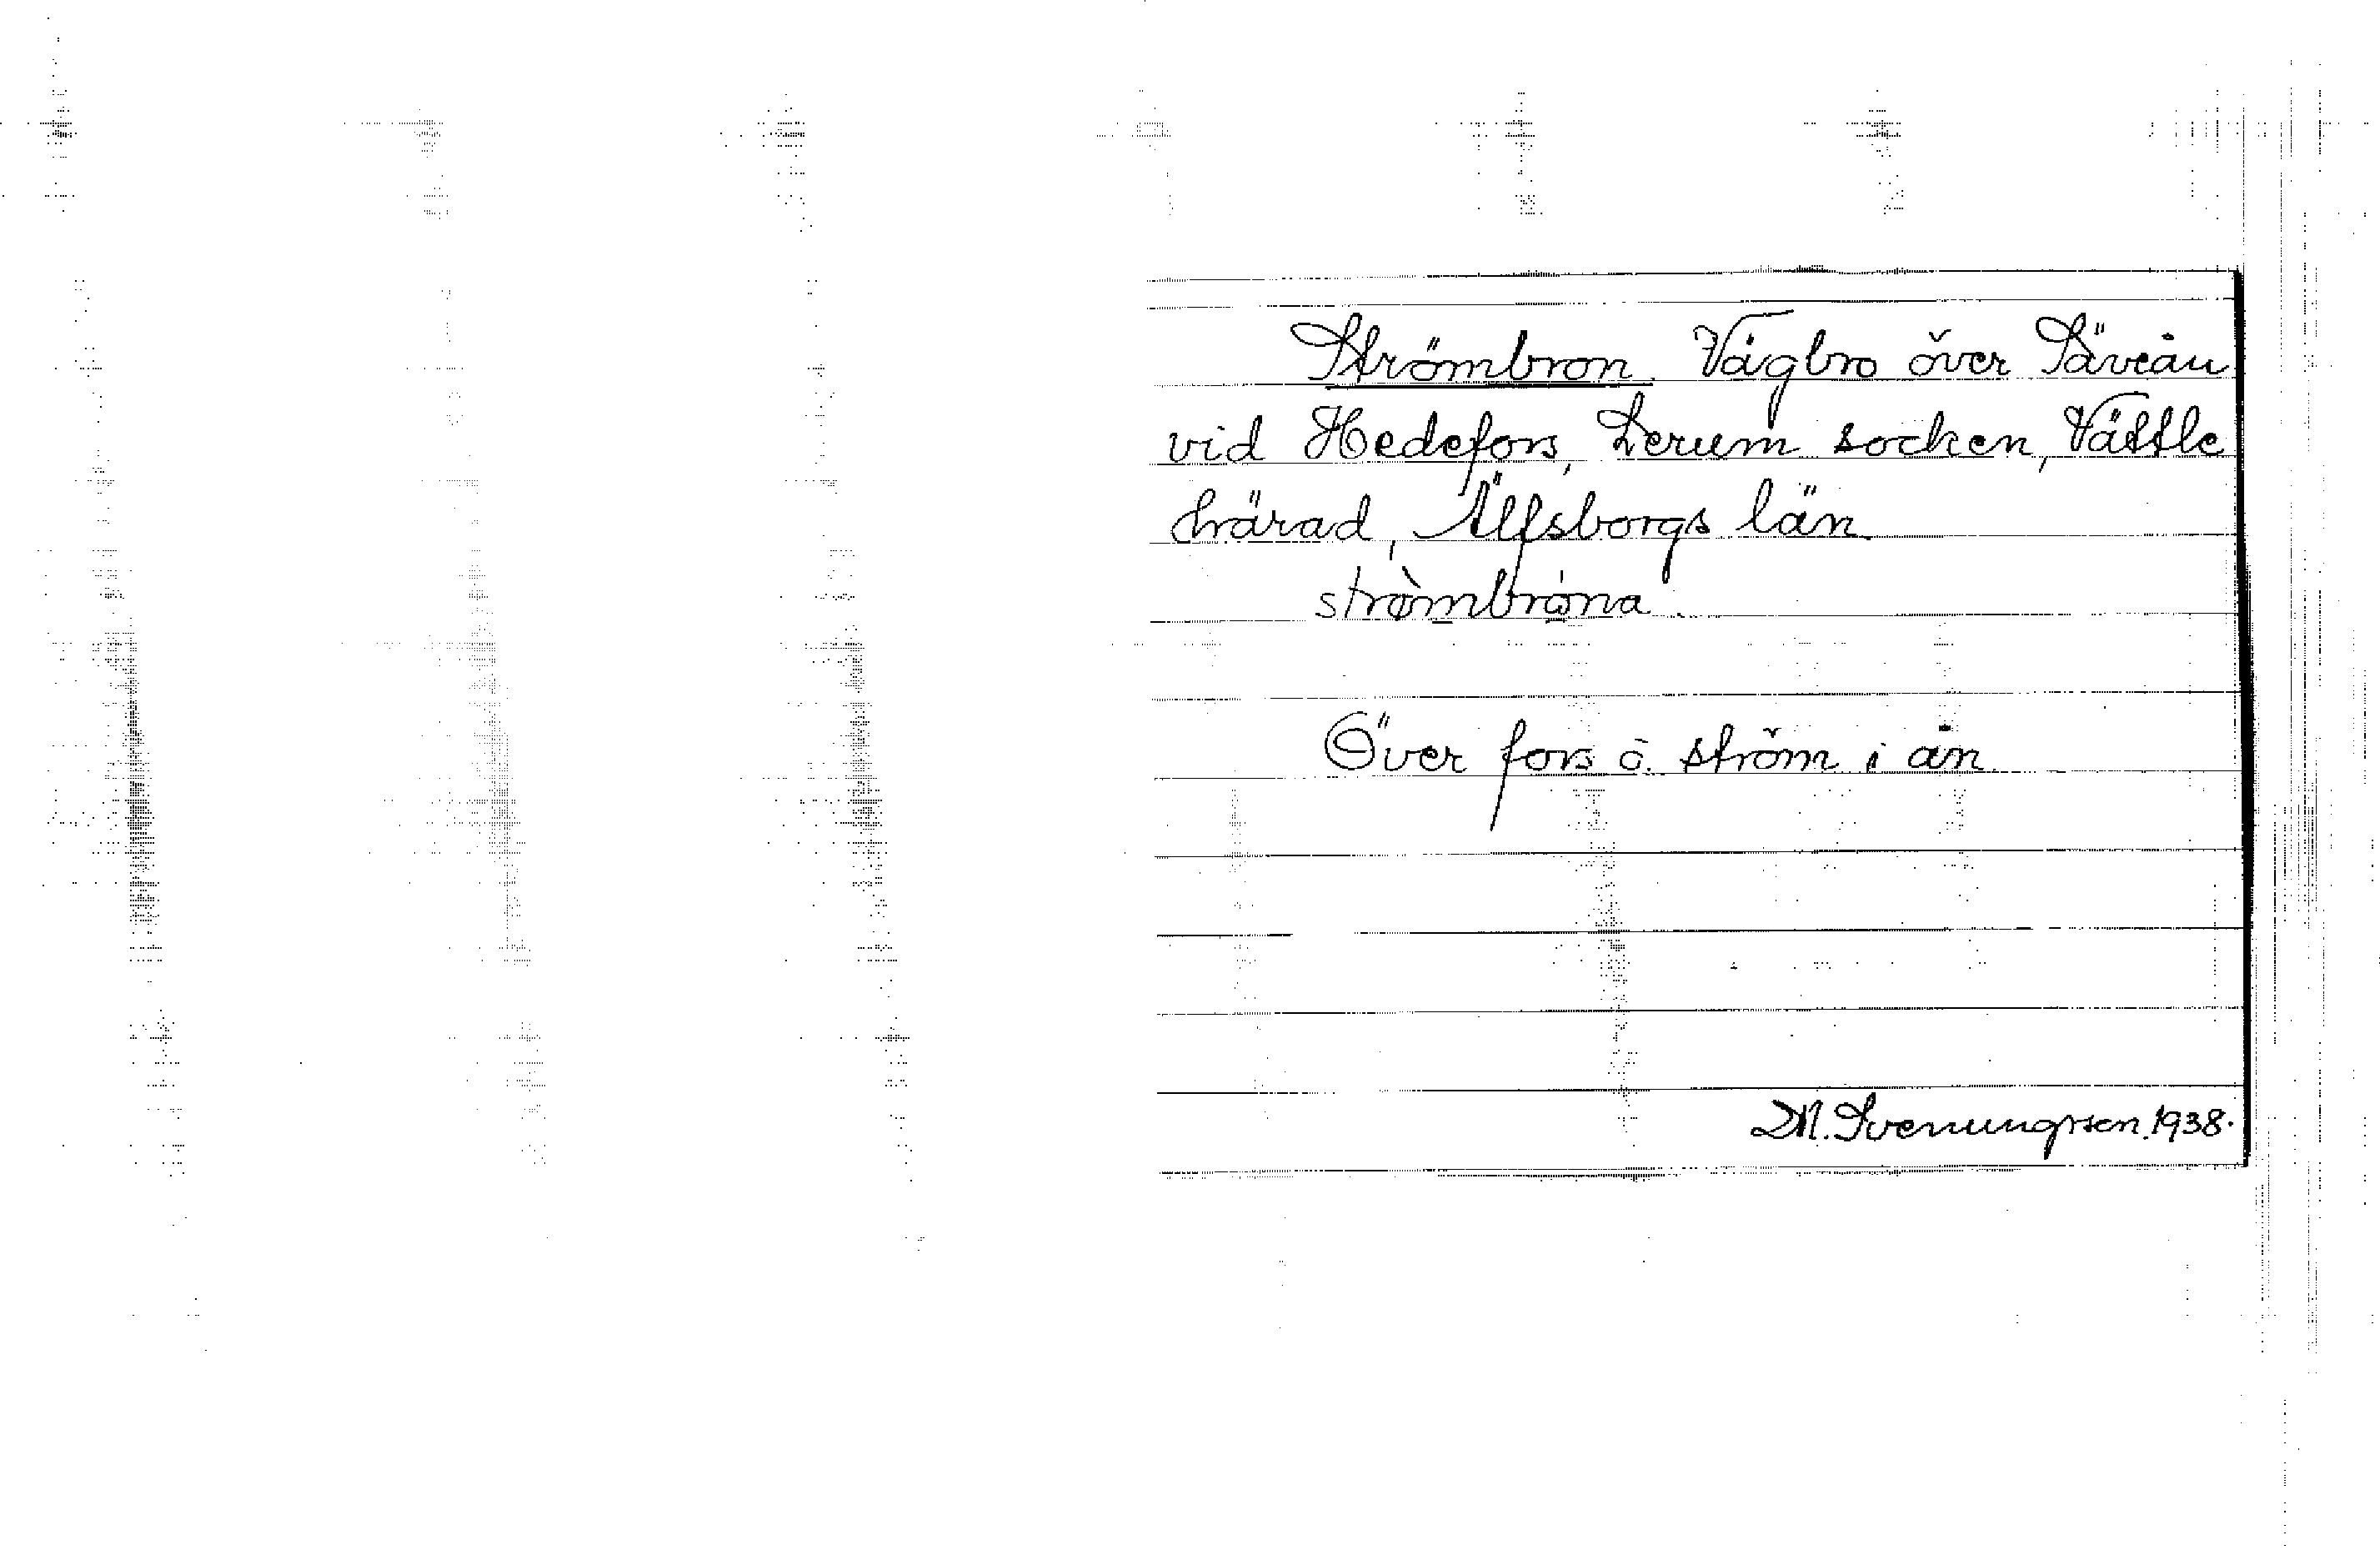 Strömbron. Vägbro över Säveån
vid Hedefors, Lerum socken, Vättle
härad, Älfsborgs län.
stròmbróna.
Över fors o. ström i ån.
M. Svenungsson. 1938.